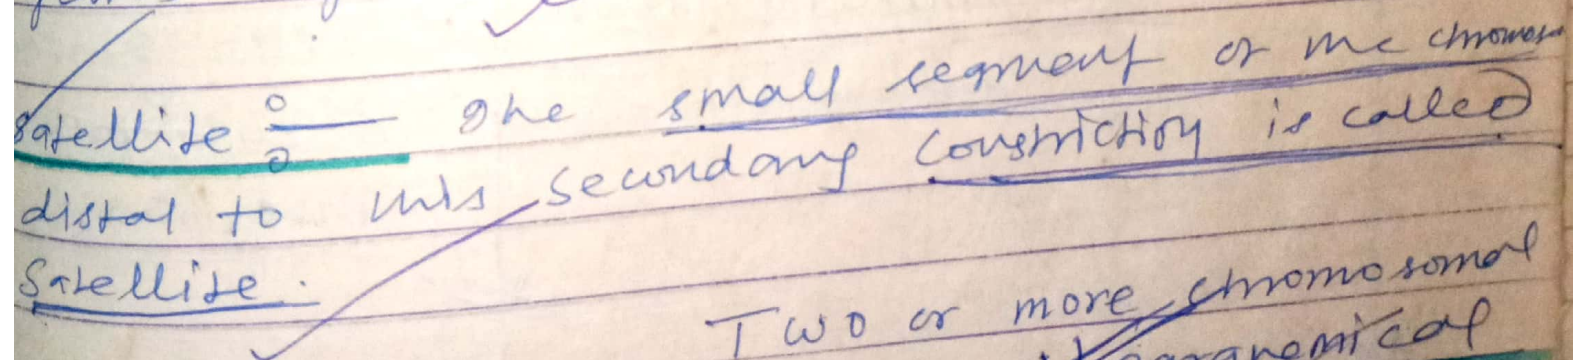 Satellite :— The small segment of the chromoso
distal to this secondary constriction is called
Satellite.
Two or more chromosomal